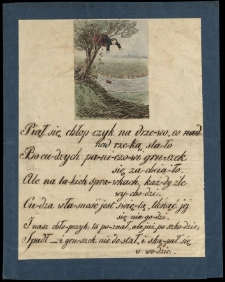 Piął się chłop-czyk na drze-wo, co nad
nad rze-ką sta-ło
Bo cu-dzych pa-ni-czo-wi gru-szek
się za-chcia-ło.
Ale na ta-kich spra-wkach, każ-dy źle
wy-cho-dzi.
Cu-dza wła-sność jest świę-tą, tknąć jej
się nie-go-dzi.
I nasz chło-pczyk to po-znał, ale już po szko-dzie,
Spadł – i gru-szek nie do-stał, i ską-pał się
w wo-dzie.